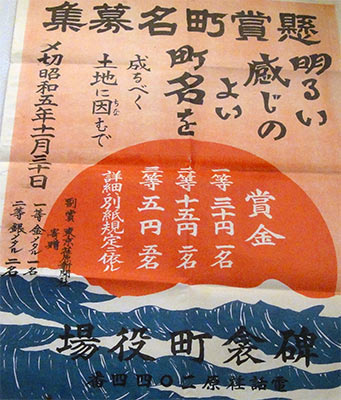 懸賞町名募集
明るい
感じの
よい
町名を
成るべく
土地に因むで
ちな
〆切昭和五年十一月三十日
賞金
一等 三十円 一名
二等 十五円 二名
三等 五円 五名
詳細ハ別紙規定ニ依ル
副賞 東京
寄贈
一等金メダル一名
二等銀メダル二名
碑衾町役場
電話荏原二〇四四番